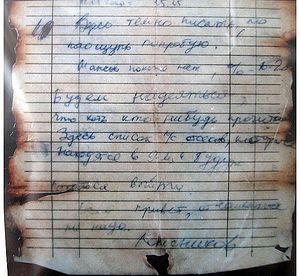 13.15
Здесь темно писать, но
наощупь попробую.
Шансов похоже нет, % 10-20
Будем надеяться,
что хоть кто нибудь прочитает
Здесь список л/с отсеков, которые
находятся в 9-м, и будут
выйти.
привет, отчаиваться
не надо.
Колесников